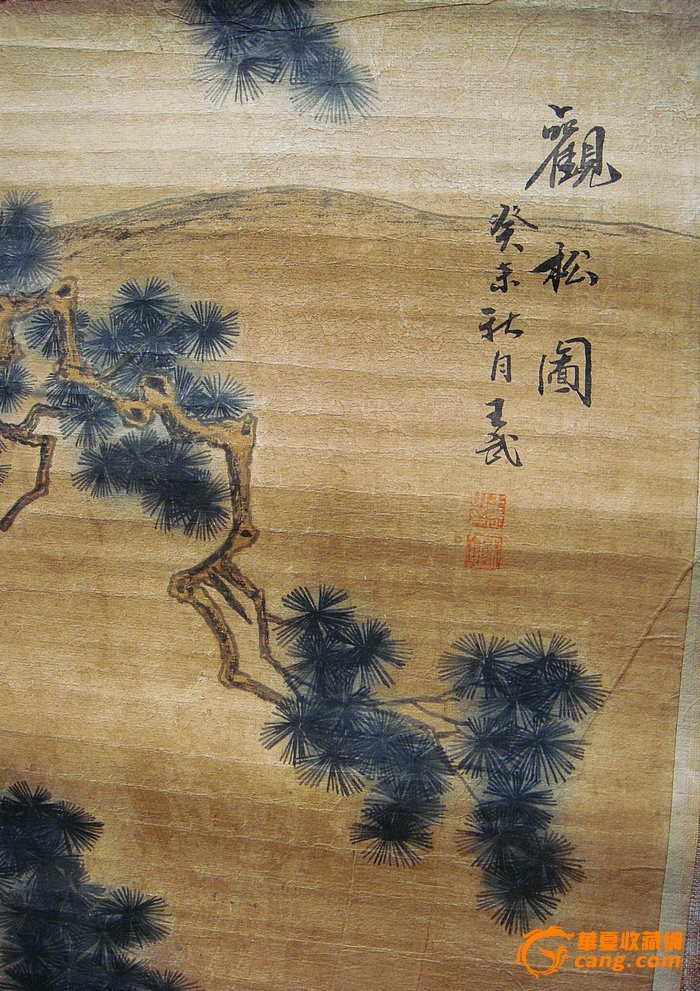 觀松圖
癸未秋月王武
華夏收藏網
cang.com